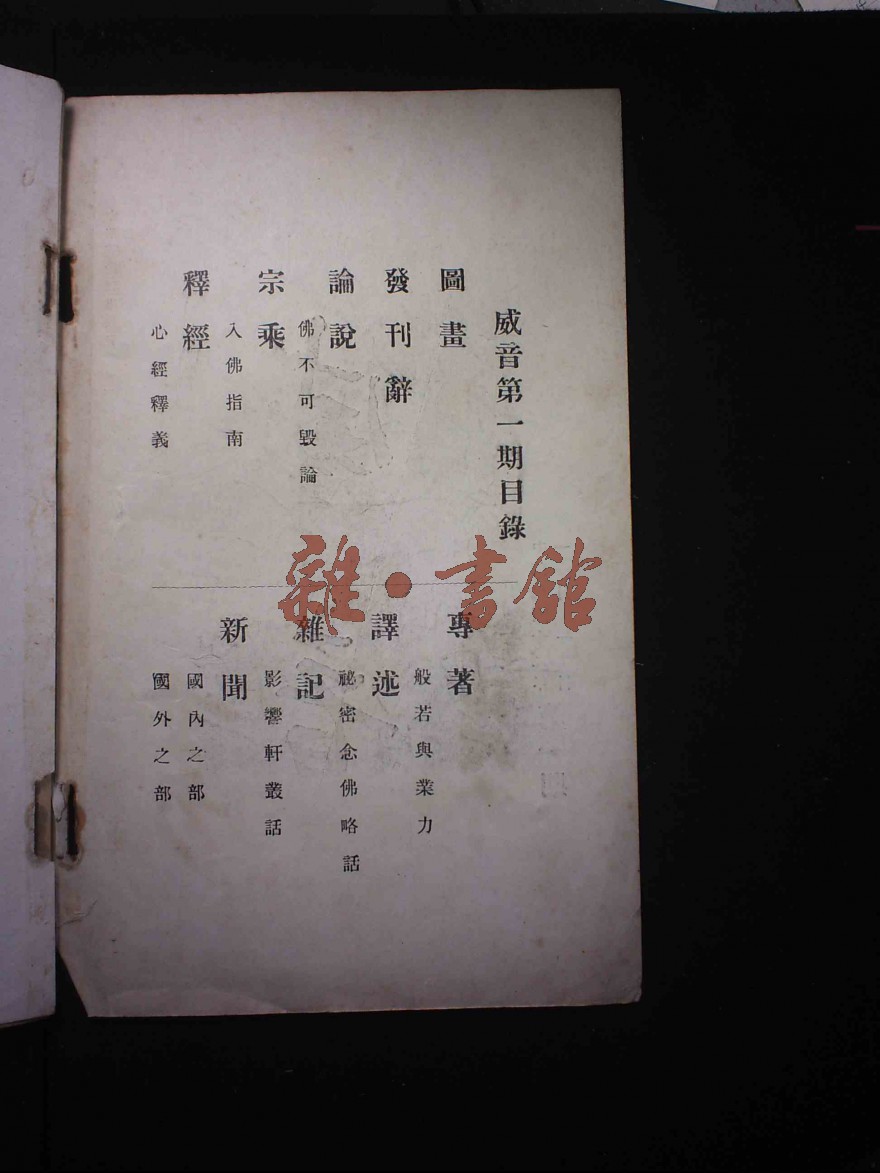 威音第一期目錄
圖畫
發刊辭
論說
佛不可毀論
宗乘
入佛指南
釋經
心經釋義
專著
般若與業力
譯述
祕密念佛略話
雜記
影響軒叢話
新聞
國內之部
國外之部
雜·書館